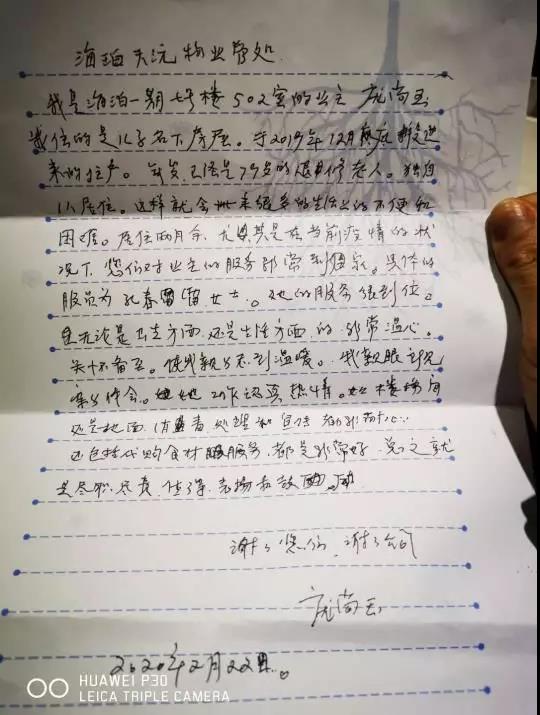 海珀天沅物业管处
我是海泊一期七号楼502室的业主 庞尚玉
我住的是儿子名下房屋。于2019年12月底搬进
来的住户。我是已经是79岁的退休老人。独自
1人居住。这样就会带来很多的生活上的不便和
困难。居住两月余、尤其是在当前疫情的状
况下,您们对业主的服务非常到位。具体的
服员为孔春 女士。她的服务很到位。
且无论是卫生方面,还是生活方面,的非常温心。
关怀备至。使我亲多感到温暖。我亲眼
体会。她工作认真热情。如楼梯间
还是地面,消毒处理和
还包括代购食材服务,都是非常好,总之就
是尽职、尽责,值得表扬和
谢谢您们,谢谢公司
庞尚玉
2020年2月22日。
HUAWEI P30
LEICA TRIPLE CAMERA